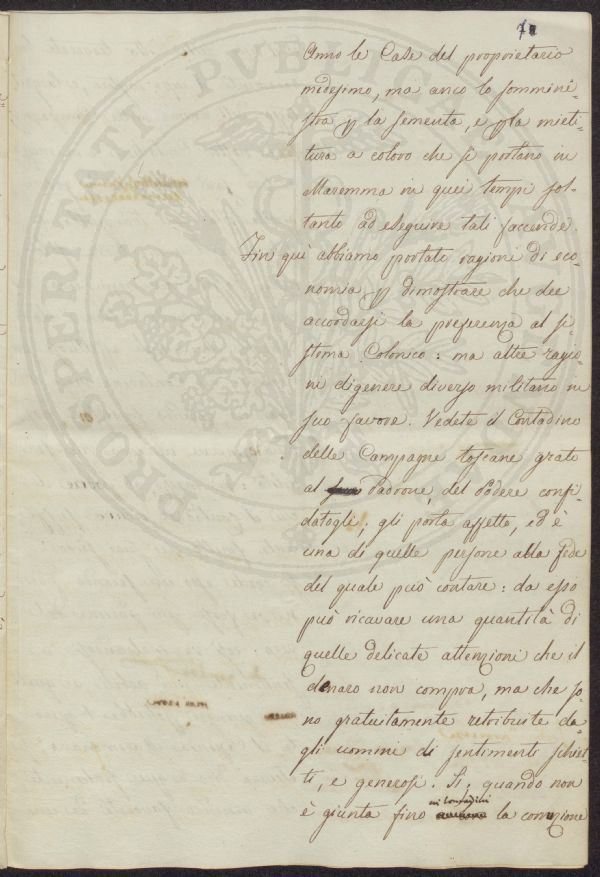 71
Anno le Case del proprietario
medesimo, ma anco lo sommini-
stra p la sementa, e p la mieti-
tura a coloro che si portano in
Maremma in quei tempi sol-
tanto ad eseguire tali faccende.
Fin quì abbiamo portate ragioni di eco-
nomia p dimostrare che dee
accordarsi la preferenza al si-
stema Colonico: ma altre ragio-
ni di genere diverso militano in
suo favore. Vedete il Contadino
delle Campagne toscane grato
al Padrone, del Podere confi-
datogli; gli porta affetto, ed è
una di quelle persone alla fede
del quale può contare: da esso
può ricavare una quantità di
quelle delicate attenzioni che il
denaro non compra, ma che so-
no gratuitamente retribuite da-
gli uomini di sentimenti schiet-
ti, e generosi. Sì, quando non
ni Contadini
è giunta fino la corruzione
PROSPERITATI PVBLICAE